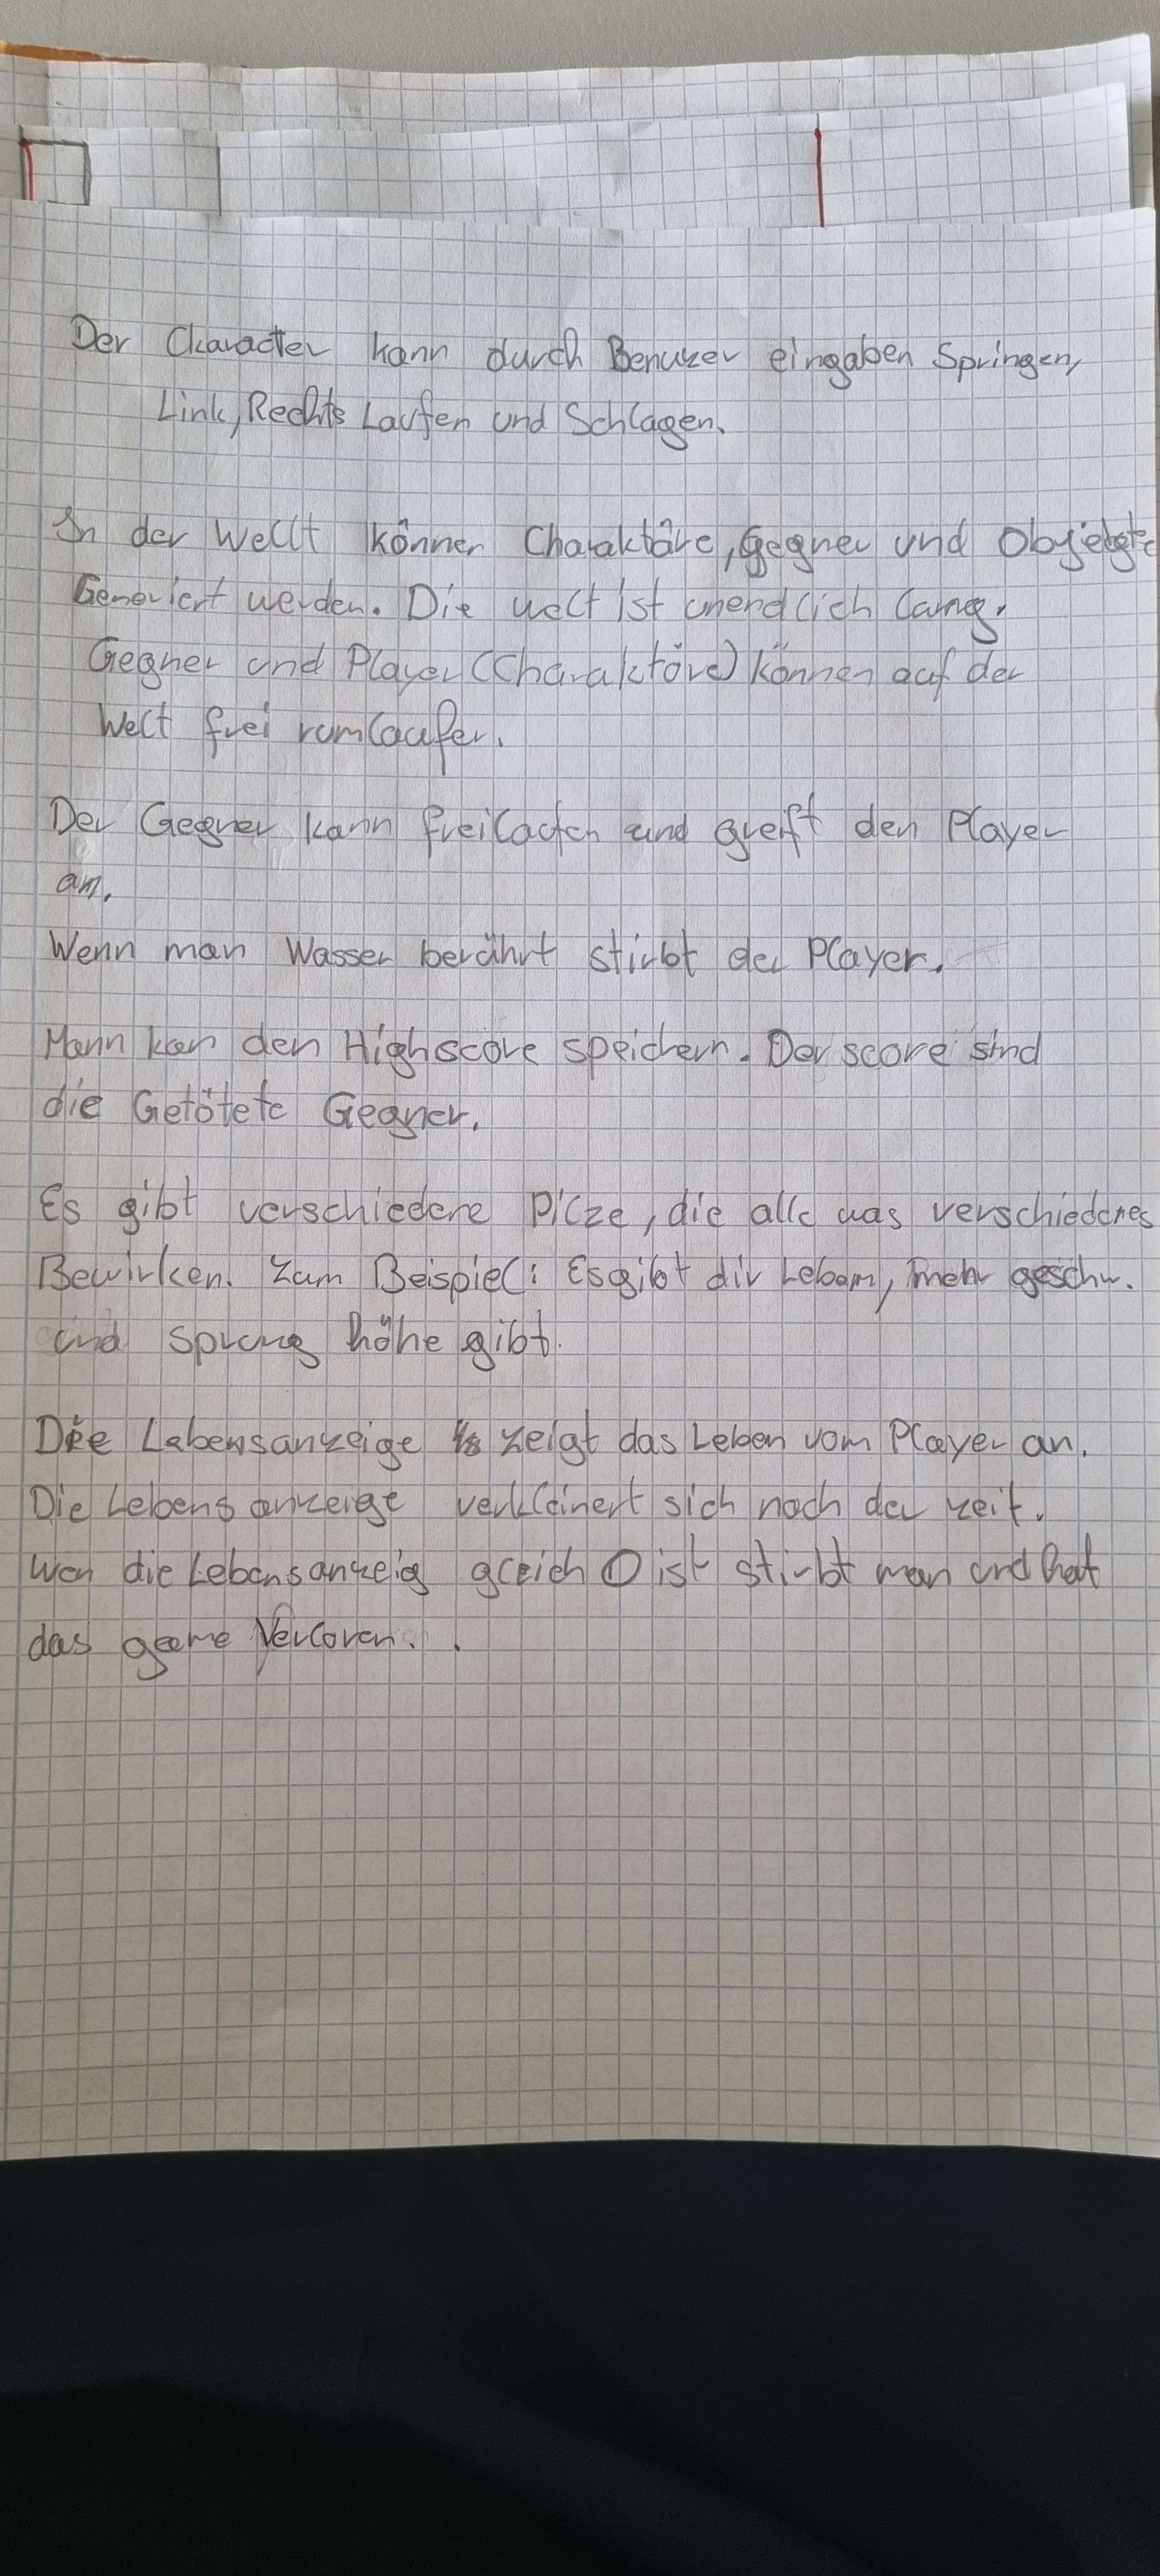 Der Character kann durch Benuzer eingaben Springen,
Link, Rechts Laufen und Schlagen.
In der Wellt können Charaktäre, Gegner und
Generiert werden. Die welt ist unendlich lang.
Gegner und Player (Charaktäre) können auf der
Welt frei rumlaufen.
Der Gegner kann frei laufen und greift den Player
an.
Wenn man Wasser berührt stirbt der Player.
Mann kan den Highscore speichern. Der score sind
die Getötete Gegner.
Es gibt verschiedene Pilze, die alle was verschiedenes
Bewirken. Zum Beispiel: Es gibt dir Leben, mehr geschw.
und sprung höhe gibt.
Die Lebensanzeige zeigt das Leben vom Player an.
Die Lebensanzeige verkleinert sich nach der zeit.
Wen die Lebensanzeig gleich 0 ist stirbt man und hat
das game Verloren.